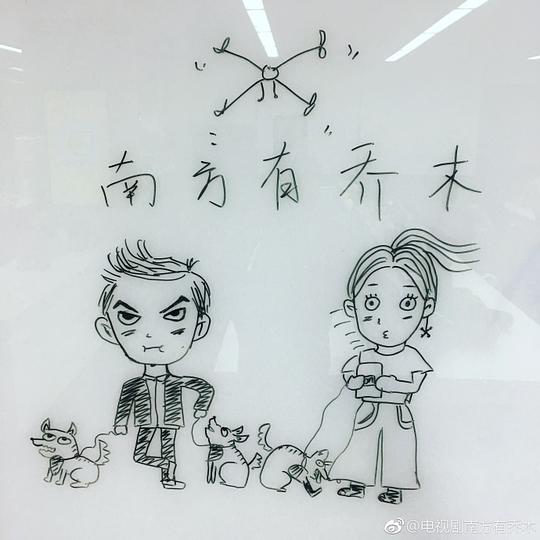 南方有乔木
@电视剧南方有乔木